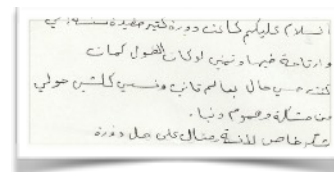 السلام عليكم كانت دورة كتير مفيدة
وارتاحة فيها وتمنى لو كان الفول كمان
كنت حسي حال بعالم تاني ونسي كلشي حولي
من مشكلة وهموم ودنيا.
شكر خاص للآنسة منال على حل دورة